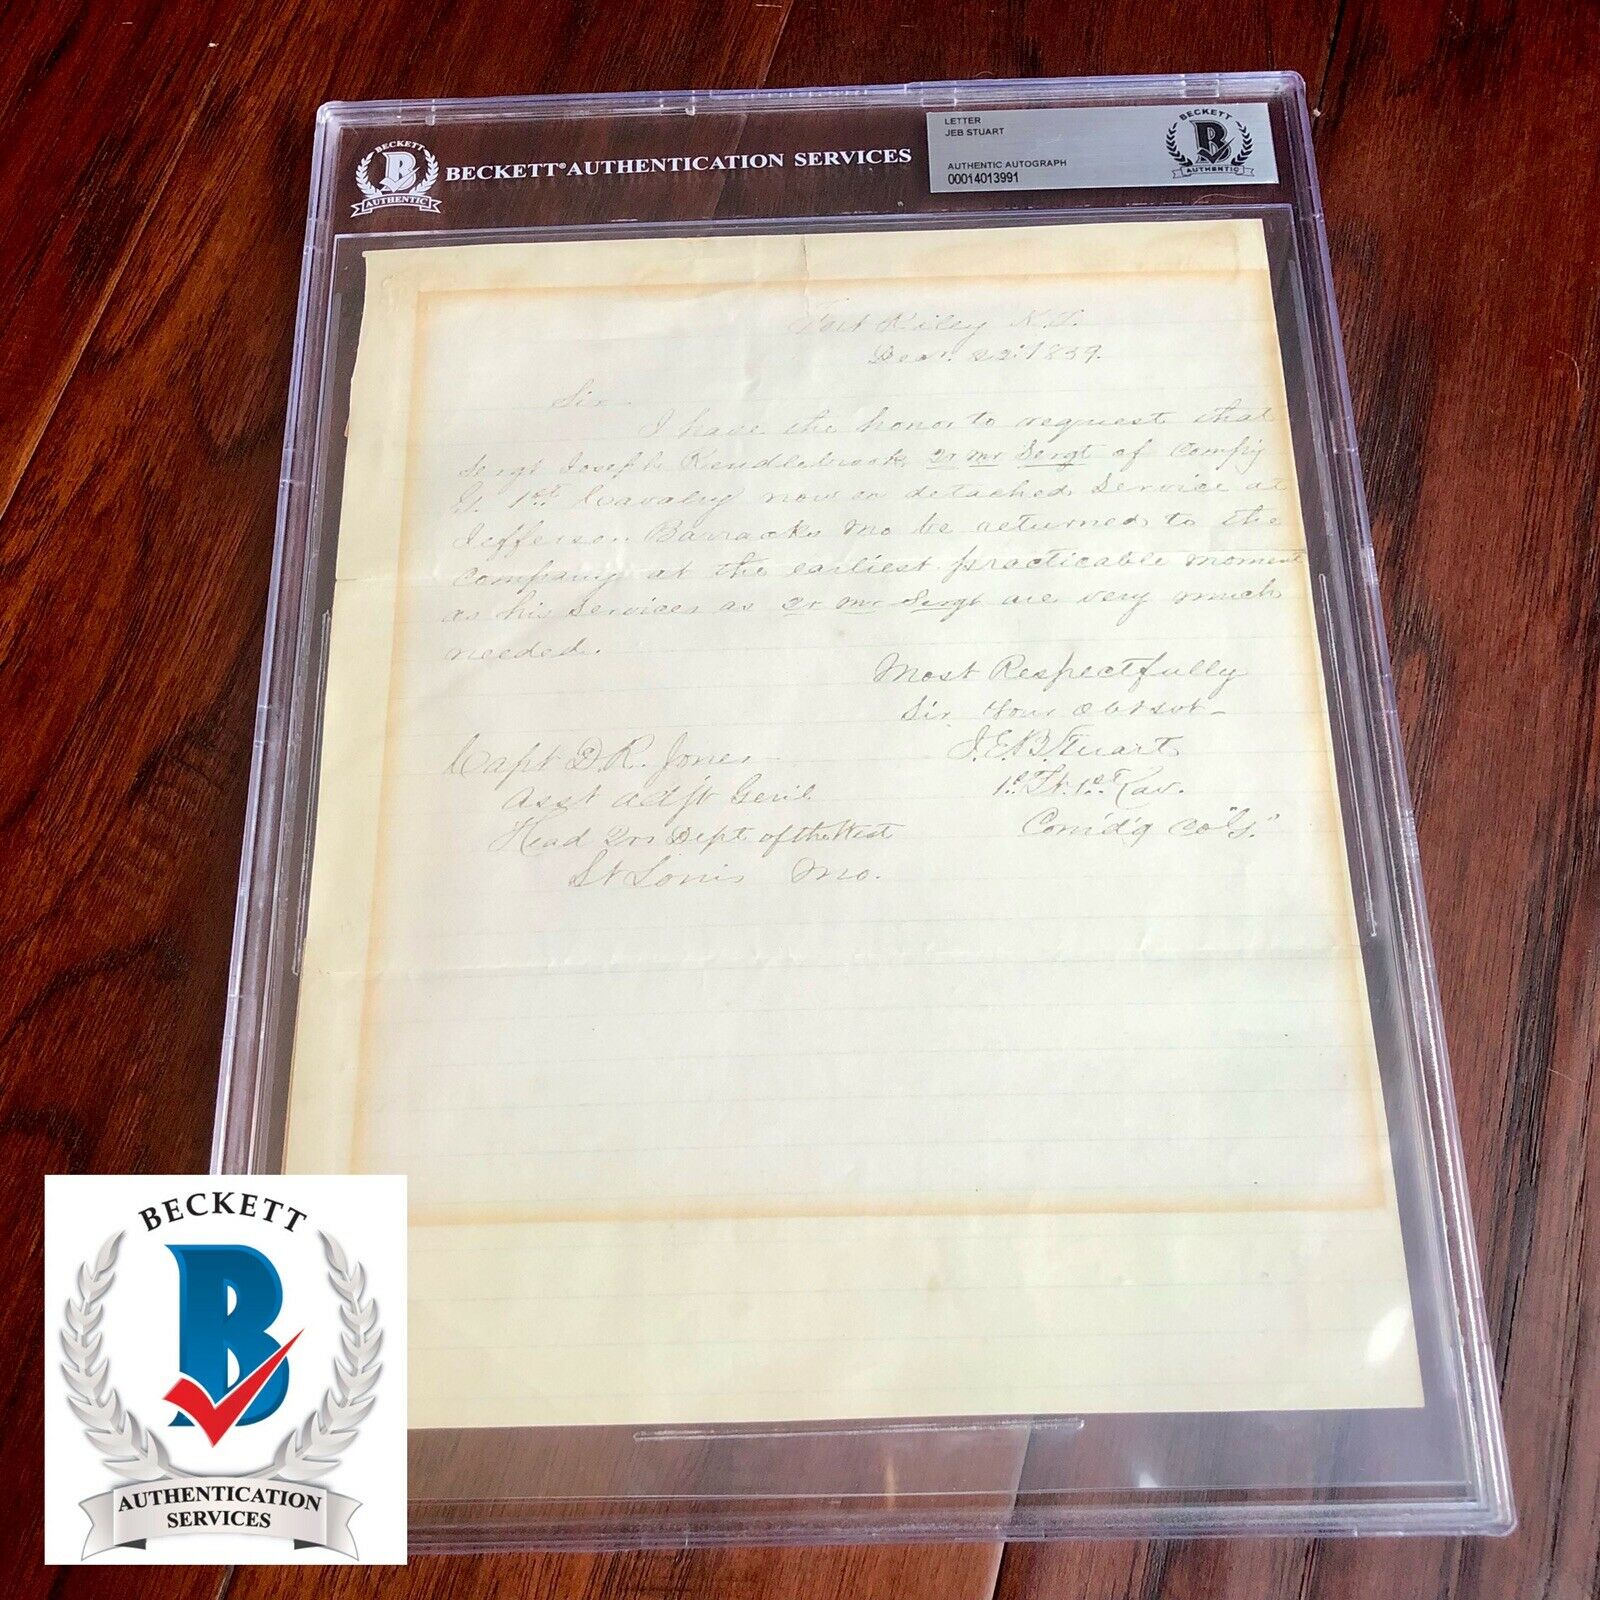 BECKETT
B
AUTHENTIC
BECKETT® AUTHENTICATION SERVICES
LETTER
JEB STUART
AUTHENTIC AUTOGRAPH
00014013991
BECKETT
B
AUTHENTIC
Fort Riley K.T.
Decr. 22d 1859.
Sir
I have the honor to request that
Sergt Joseph Kendlebrook Qr Mr Sergt of Comp'y
G. 1st Cavalry now on detached service at
Jefferson Barracks Mo be returned to the
company at the earliest practicable moment
as his services as Qr Mr Sergt are very much
needed.
Most Respectfully
Sir Your Obt svt
J.E.B. Stuart
1st Lt. 1st Cav.
Com'd'g Co "G."
Capt D.R. Jones
Asst Adjt Genl
Head Qrs Dept of the West
St Louis Mo.
BECKETT
B
AUTHENTICATION
SERVICES